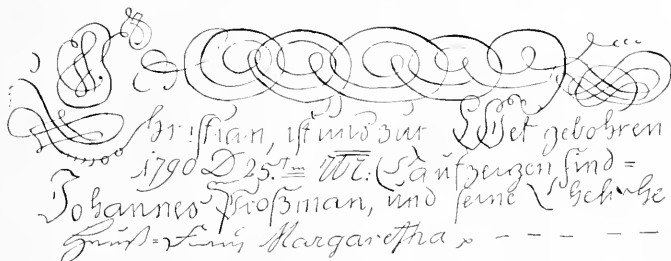 Christian, ist uns zur Welt gebohren
1790 D 25.tm M: Taufzeugen sind =
Johannes Proßman, und seine Eheliche
Hauß = Frau Margaretha